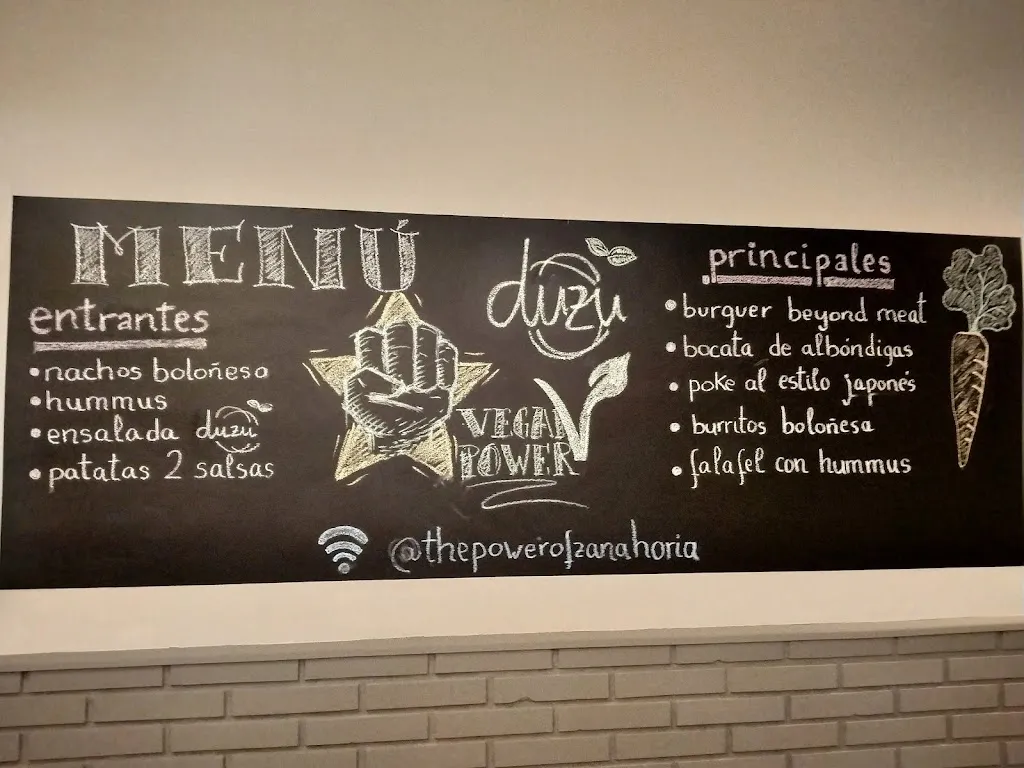 MENÚ
entrantes
• nachos boloñesa
• hummus
• ensalada duzu
• patatas 2 salsas
duzu
VEGAN
POWER
principales
• burguer beyond meat
• bocata de albóndigas
• poke al estilo japonés
• burritos boloñesa
• falafel con hummus
@thepowerofzanahoria